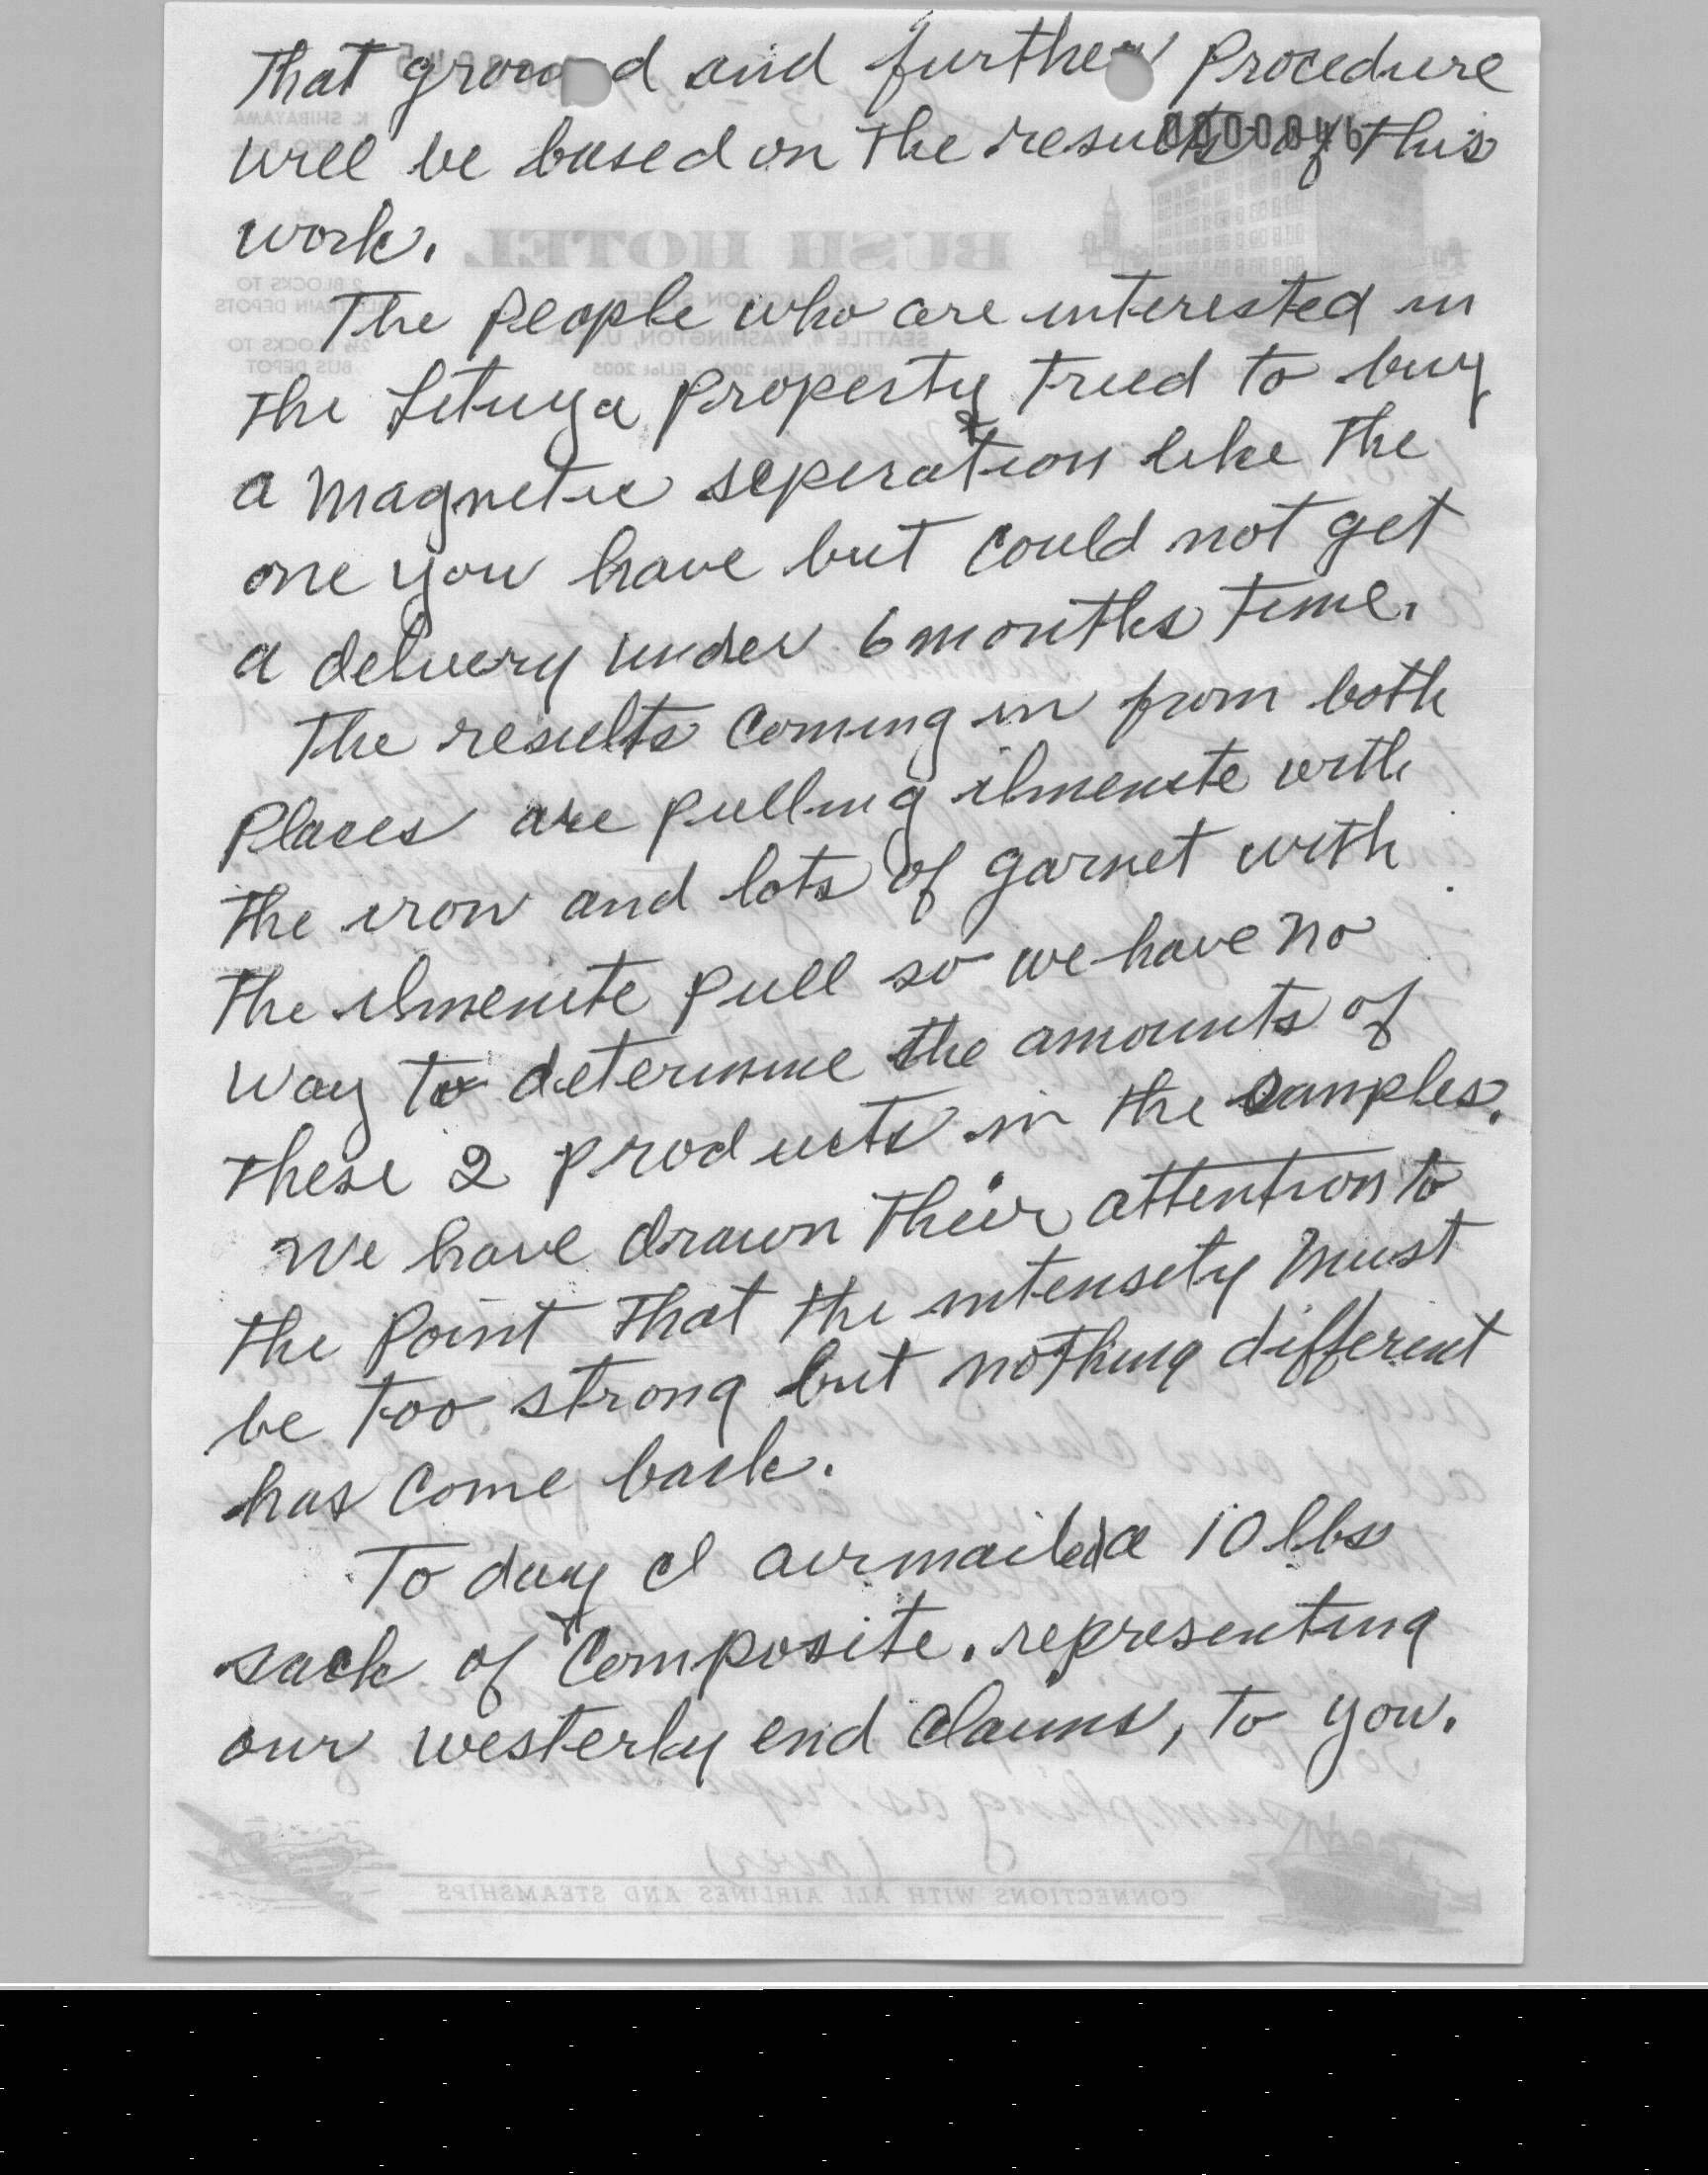 That ground and further Procedure
will be based on the results of this
0000046
work.
The people who are interested in
the Lituya property tried to buy
a magnetic seperation like the
one you have but could not get
a delivery under 6 months time.
The results coming in from both
Places are pulling ilmenite with
the iron and lots of garnet with
the ilmenite pull so we have no
way to determine the amounts of
these 2 products in the samples.
We have drawn their attention to
the point that the intensity must
be too strong but nothing different
has come back.
To day I airmailed a 10 lbs
sack of composite. representing
our westerly end claims, to you.
K. SHIBAYAMA
BUSH HOTEL
2 BLOCKS TO
TRAIN DEPOTS
JACKSON STREET
SEATTLE 4, WASHINGTON, U.S.A.
2½ BLOCKS TO
BUS DEPOT
(over)
CONNECTIONS WITH ALL AIRLINES AND STEAMSHIPS